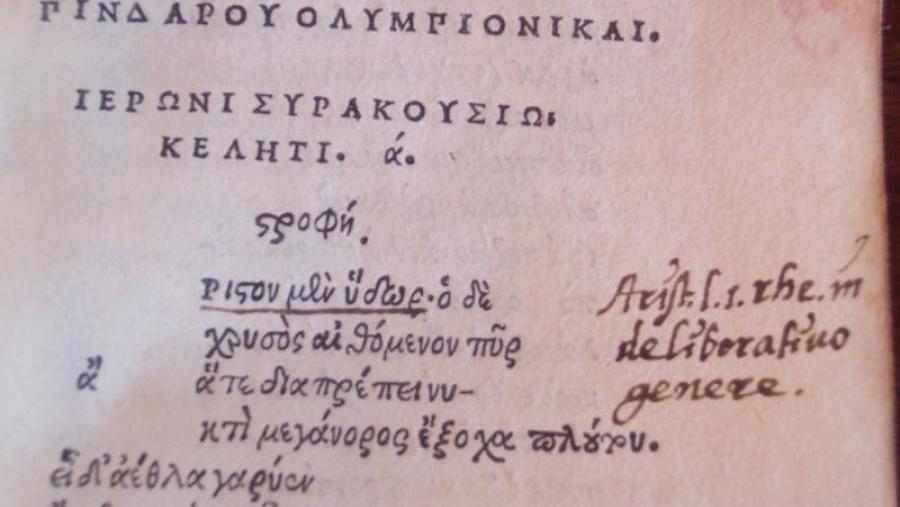 ΠΙΝΔΑΡΟΥ ΟΛΥΜΠΙΟΝΙΚΑΙ.
ΙΕΡΩΝΙ ΣΥΡΑΚΟΥΣΙΩ,
ΚΕΛΗΤΙ. ά.
ϛροφή.
ΡΙϛον μὲν ὕδωρ· ὁ δὲ
χρυσὸς αἰθόμενον πῦρ
ἄ
ἅτε διαπρέπει νυ-
κτὶ μεγάνορος ἔξοχα πλούτου.
εἰ δ' ἀέθλα γαρύεν
Arist. l. 1. rhe. in
deliberatiuo
genere.